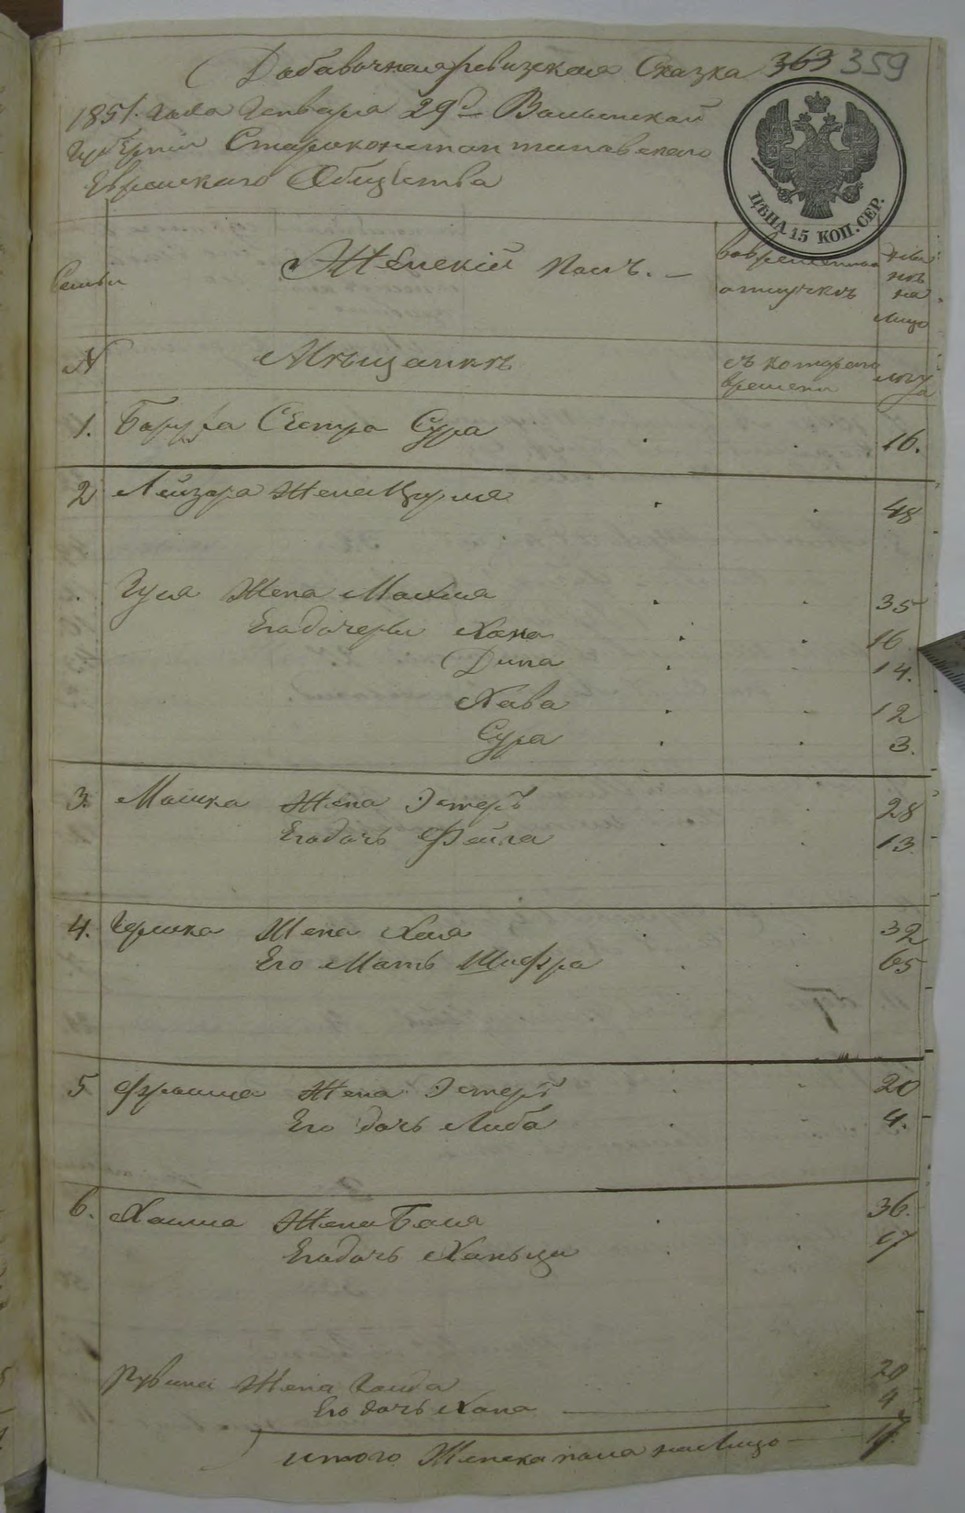 Добавочная ревизская Сказка 363 359
1851. года Генваря 29 д Волынской
Губернии Староконстантиновского
Еврейского Общества
ЦѢНА 15 КОП. СЕР.
Семьи Женскій полъ. вовременной отлучкѣ нынѣ на лицо
№ Мѣщанкѣ съ котораго времени лѣта
1. Боруха Сестра Сура 16.
2 Лейзора Жена Цурля 48
Гуля Жена Малья 35
Его дочери Хана 16
Дина 14.
Хава 12
Сура 3.
3. Мошка Жена Эстеръ 28
Его дочь Фейга 13
4. Гершка Жена Хая 32
Его Мать Шифра 65
5 Фроима Жена Эстеръ 20
Его дочь Либа 4.
6. Хаима Жена Бася 36.
Его дочь Ханьця 17
Рувина Жена Голда 20
Его дочь Хана 4
итого Женска пола на лицо